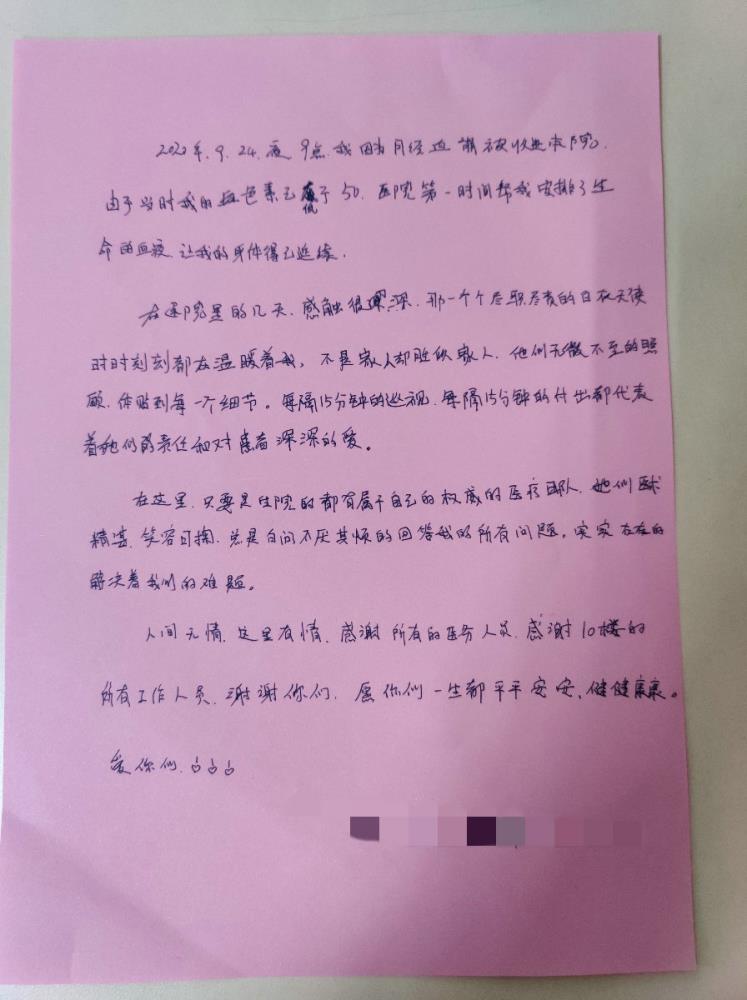 2020年.9.24.夜9点.我因为月经过期被收进本院.
由于当时我的血色素已低于50.医院第一时间帮我安排了生
命的血液.让我的身体得已延续.
在医院里的几天.感触很深.那一个个尽职尽责的白衣天使
时时刻刻都在温暖着我,不是家人却胜似家人.他们无微不至的照
顾.体贴到每一个细节。每隔15分钟的巡视.每隔15分钟的付出都代表
着她们的责任和对患者深深的爱。
在这里.只要是住院的都有属于自己的权威的医疗团队.她们医术
精湛.笑容可掬.总是百问不厌其烦的回答我的所有问题.实实在在的
解决着我们的难题。
人间无情.这里有情.感谢所有的医务人员.感谢10楼的
所有工作人员.谢谢你们.愿你们一生都平平安安、健健康康。
爱你们.